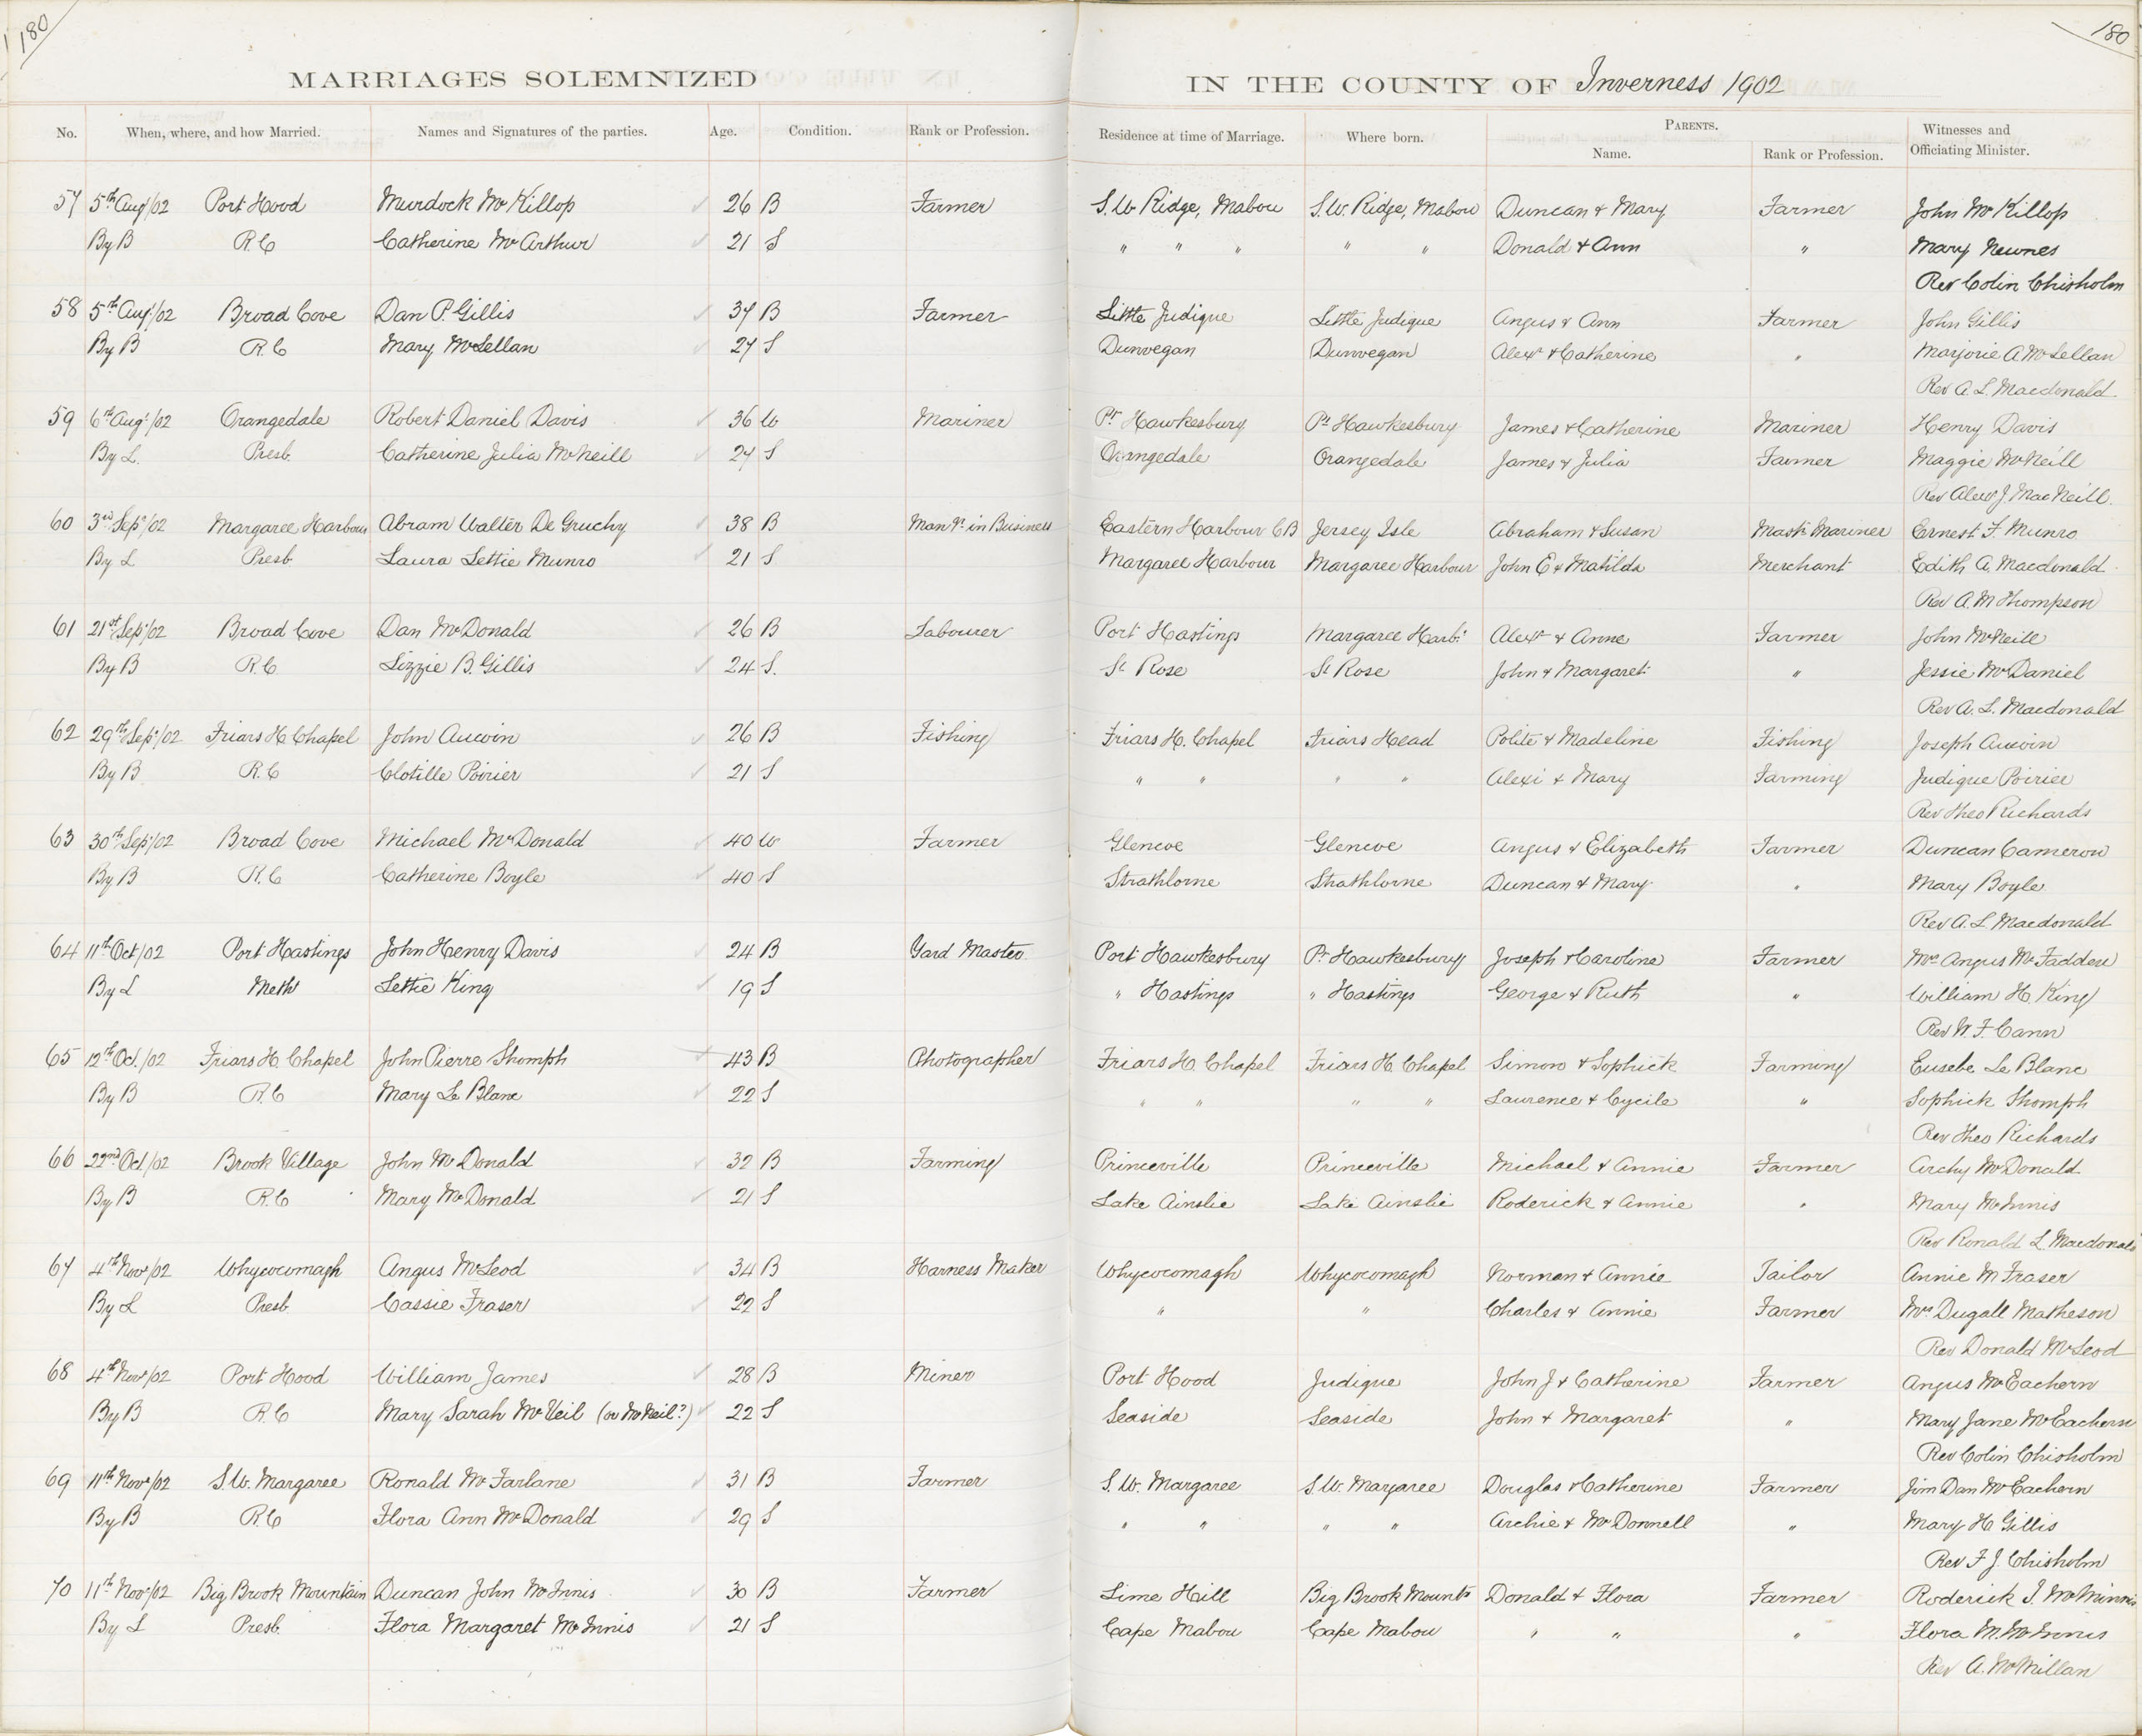 180
180
MARRIAGES SOLEMNIZED IN THE COUNTY OF Inverness 1902
No. When, where, and how Married. Names and Signatures of the parties. Age. Condition. Rank or Profession. Residence at time of Marriage. Where born. PARENTS. Name. Rank or Profession. Witnesses and Officiating Minister.
57 5th Aug/02 Port Hood Murdock McKillop 26 B Farmer S.W Ridge, Mabou S.W. Ridge, Mabou Duncan & Mary Farmer John McKillop
By B R.C Catherine McArthur 21 S " " " " " Donald & Ann " Mary Newnes
Rev Colin Chisholm
58 5th Aug/02 Broad Cove Dan P. Gillis 37 B Farmer Little Judique Little Judique Angus & Ann Farmer John Gillis
By B R.C Mary McLellan 27 S Dunvegan Dunvegan Alexr & Catherine " Marjorie A. McLellan
Rev A. L. Macdonald
59 6th Aug/02 Orangedale Robert Daniel Davis 36 W Mariner Pt Hawkesbury Pt Hawkesbury James & Catherine Mariner Henry Davis
By L. Presb. Catherine Julia McNeill 27 S Orangedale Orangedale James & Julia Farmer Maggie McNeill
Rev Alexr J MacNeill.
60 3rd Sep/02 Margaree Harbour Abram Walter De Gruchy 38 B Mangr. in Business Eastern Harbour CB Jersey Isle Abraham & Susan Mastr Mariner Ernest F. Munro
By L Presb Laura Lettie Munro 21 S Margaree Harbour Margaree Harbour John E & Matilda Merchant Edith A. Macdonald
Rev A. M Thompson
61 21st Sep/02 Broad Cove Dan McDonald 26 B Labourer Port Hastings Margaree Harbr Alexr & Anne Farmer John McNeill
By B R.C Lizzie B. Gillis 24 S. St Rose St Rose John & Margaret " Jessie McDaniel
Rev A. L. Macdonald
62 29th Sep/02 Friars H Chapel John Aucoin 26 B Fishing Friars H. Chapel Friars Head Polite & Madeline Fishing Joseph Aucoin
By B R.C Clotille Poirier 21 S " " " " Alexi & Mary Farming Judique Poirier
Rev Theo Richards
63 30th Sep/02 Broad Cove Michael McDonald 40 W Farmer Glencoe Glencoe Angus & Elizabeth Farmer Duncan Cameron
By B R.C Catherine Boyle 40 S Strathlorne Strathlorne Duncan & Mary " Mary Boyle
Rev A. L Macdonald
64 11th Oct/02 Port Hastings John Henry Davis 24 B Yard Master Port Hawkesbury Pt Hawkesbury Joseph & Caroline Farmer Mrs Angus McFadden
By L Meth Lettie King 19 S " Hastings " Hastings George & Ruth " William H. King
Rev W. F. Cann
65 12th Oct./02 Friars H. Chapel John Pierre Shomph 43 B Photographer Friars H. Chapel Friars H. Chapel Simon & Sophick Farming Eusebe Le Blanc
By B R.C Mary Le Blanc 22 S " " " " Laurence & Cycile " Sophick Shomph
Rev Theo Richards
66 22nd Oct/02 Brook Village John McDonald 32 B Farming Princeville Princeville Michael & Annie Farmer Archy McDonald
By B R.C Mary McDonald 21 S Lake Ainslie Lake Ainslie Roderick & Annie " Mary McInnis
Rev Ronald L Macdonald
67 4th Nov/02 Whycocomagh Angus McLeod 34 B Harness Maker Whycocomagh Whycocomagh Norman & Annie Tailor Annie M Fraser
By L Presb Cassie Fraser 22 S " " Charles & Annie Farmer Mrs Dugall Matheson
Rev Donald McLeod
68 4th Nov/02 Port Hood William James 28 B Miner Port Hood Judique John J & Catherine Farmer Angus McEachern
By B R.C Mary Sarah McVeil (or McNeil?) 22 S Seaside Seaside John & Margaret " Mary Jane McEachern
Rev Colin Chisholm
69 11th Nov/02 S.W. Margaree Ronald McFarlane 31 B Farmer S.W. Margaree S.W. Margaree Douglas & Catherine Farmer Jim Dan McEachern
By B R.C Flora Ann McDonald 29 S " " " " Archie & McDonnell " Mary H Gillis
Rev F J. Chisholm
70 11th Nov/02 Big Brook Mountain Duncan John McInnis 30 B Farmer Lime Hill Big Brook Mountn Donald & Flora Farmer Roderick J. McMinnis
By L Presb. Flora Margaret McInnis 21 S Cape Mabou Cape Mabou " " " Flora M. McInnis
Rev A. McMillan